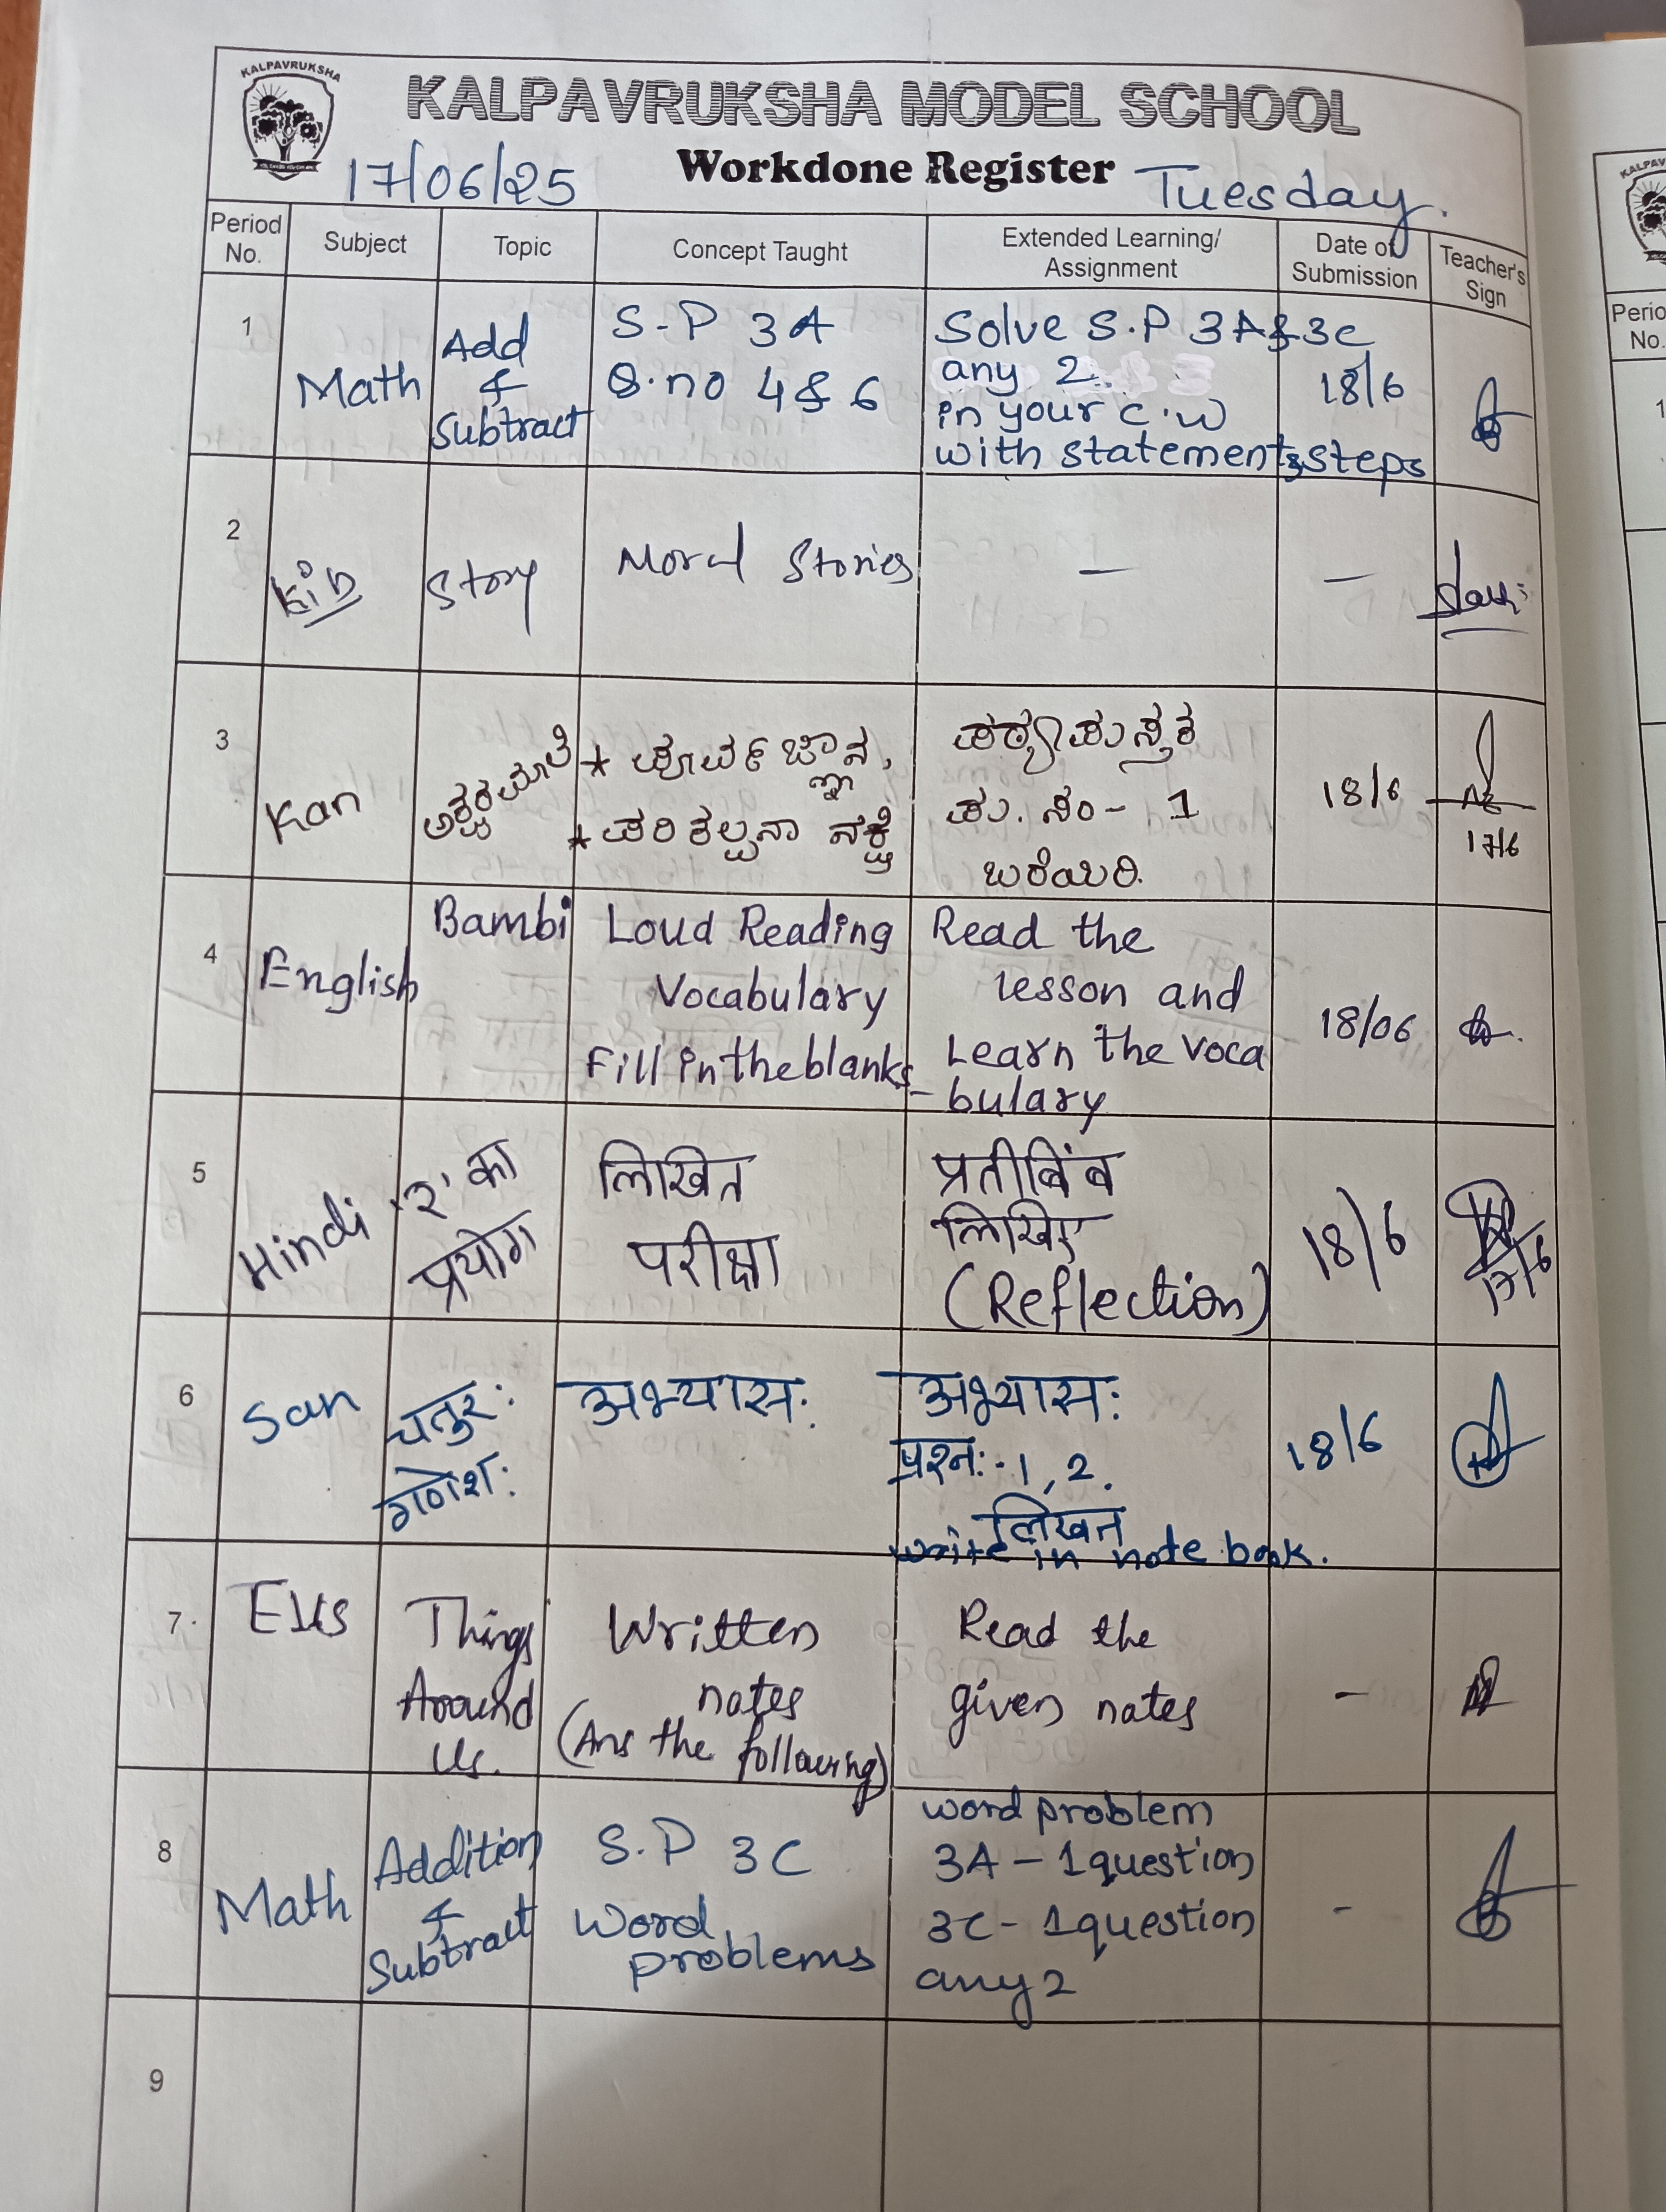 KALPAVRUKSHA
KALPAVRUKSHA MODEL SCHOOL
Workdone Register
17/06/25
Tuesday.
Period No. Subject Topic Concept Taught Extended Learning/ Assignment Date of Submission Teacher's Sign
1
Math
Add
&
Subtract
S-P 3A
Q.no 4 & 6
Solve S.P 3A & 3C
any 2.
in your C.W
with statement & steps
18/6
2
Story
Moral Stories
—
—
3
Kan
ಅಕ್ಷರಮಾಲೆ
* ಪೂರ್ವ ಜ್ಞಾನ,
* ಪರಿಕಲ್ಪನಾ ನಕ್ಷೆ
ಪಠ್ಯಪುಸ್ತಕ
ಪು. ಸಂ - 1
ಬರೆಯಿರಿ.
18/6
17/6
4
English
Bambi
Loud Reading
Vocabulary
Fill in the blanks
Read the
lesson and
Learn the voca
- bulary
18/06
5
Hindi
'र' का
प्रयोग
लिखित
परीक्षा
प्रतीबिंब
लिखिए
(Reflection)
18/6
17/6
6
San
चतुरः
गणेशः
अभ्यासः
अभ्यासः
प्रश्नः - 1, 2.
लिखत
write in note book.
18/6
7
EVS
Things
Around
Us.
Written
notes
(Ans the following)
Read the
given notes
-
8
Math
Addition
&
Subtract
S.P 3C
Word
problems
word problem
3A - 1 question
3C - 1 question
any 2
-
9
KALPAV
Perio
No.
1